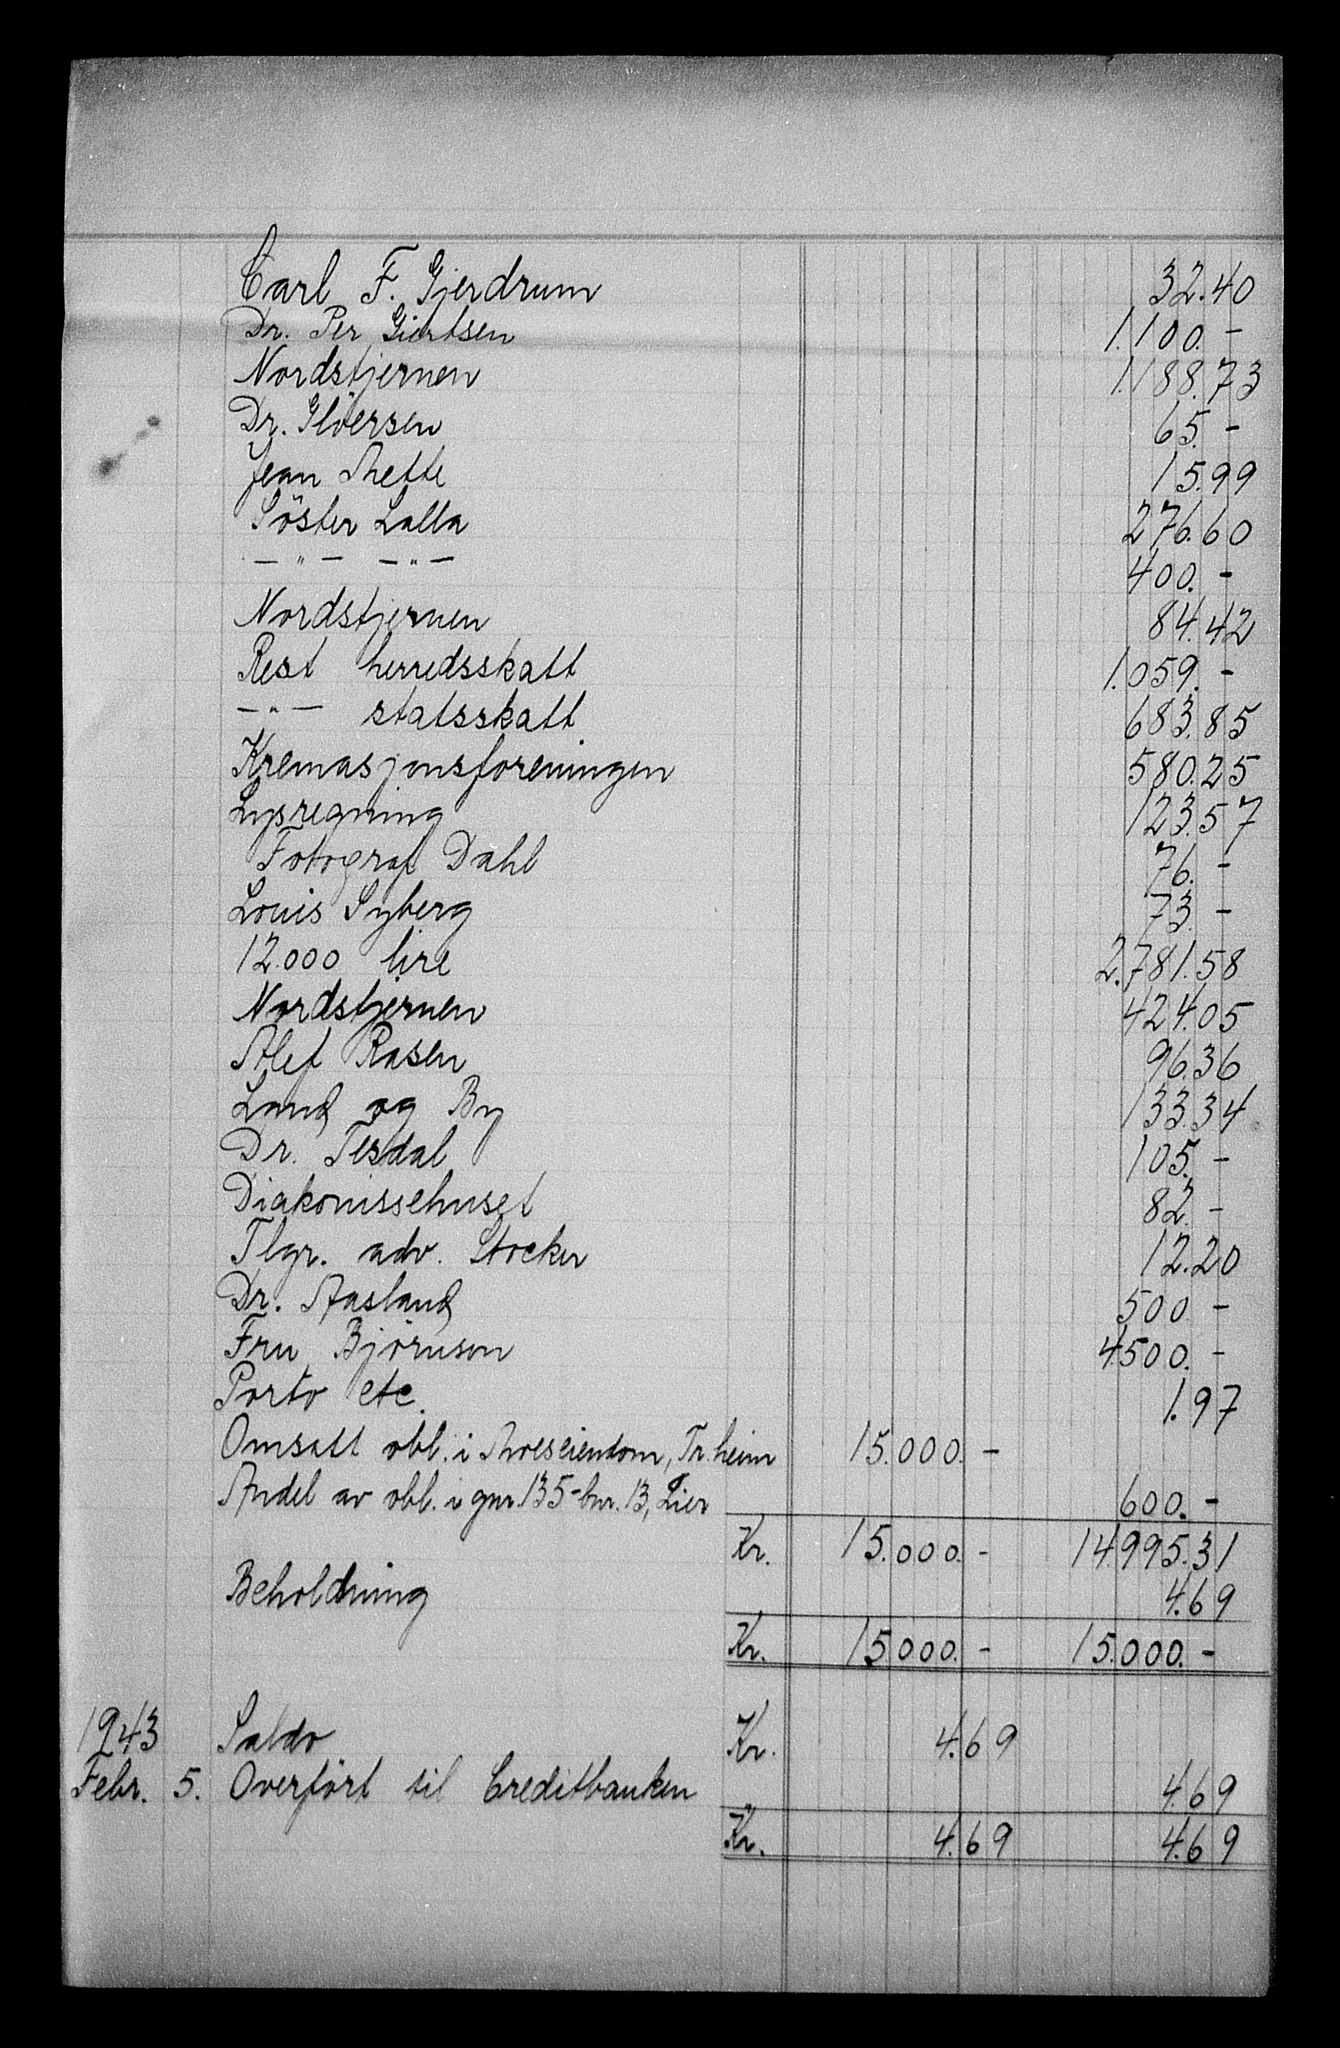 Carl F. Gjerdrum 32.40
Dr. Per Giertsen 1.100.-
Nordstjernen 1.188.73
Dr. Glöersen 65.-
Jean Mette 15.99
Söster Lalla 276.60
—"— —"— 400.-
Nordstjernen 84.42
Rest herredsskatt 1.059.-
—"— statsskatt 683.85
Kremasjonsforeningen 580.25
Lysregning 123.57
Fotograf Dahl 76.-
Louis Syberg 73.-
12.000 lire 2.781.58
Nordstjernen 424.05
Alef Rasen 96.36
Land og By 133.34
Dr. Tesdal 105.-
Diakonissehuset 82.-
Tlgr. adv. Stocker 12.20
Dr. Aasland 500-
Fru Bjørnson 4500.-
Porto etc. 1.97
Omsatt obl. i Tr.heim 15.000.-
Andel av obl. i gnr. 135-bnr. 13, Lier 600.-
Kr. 15.000.- 14995.31
Beholdning 4.69
Kr. 15000.- 15.000.-
1943 Saldo Kr. 4.69
Febr. 5. Overført til Creditbanken 4.69
Kr. 4.69 4.69